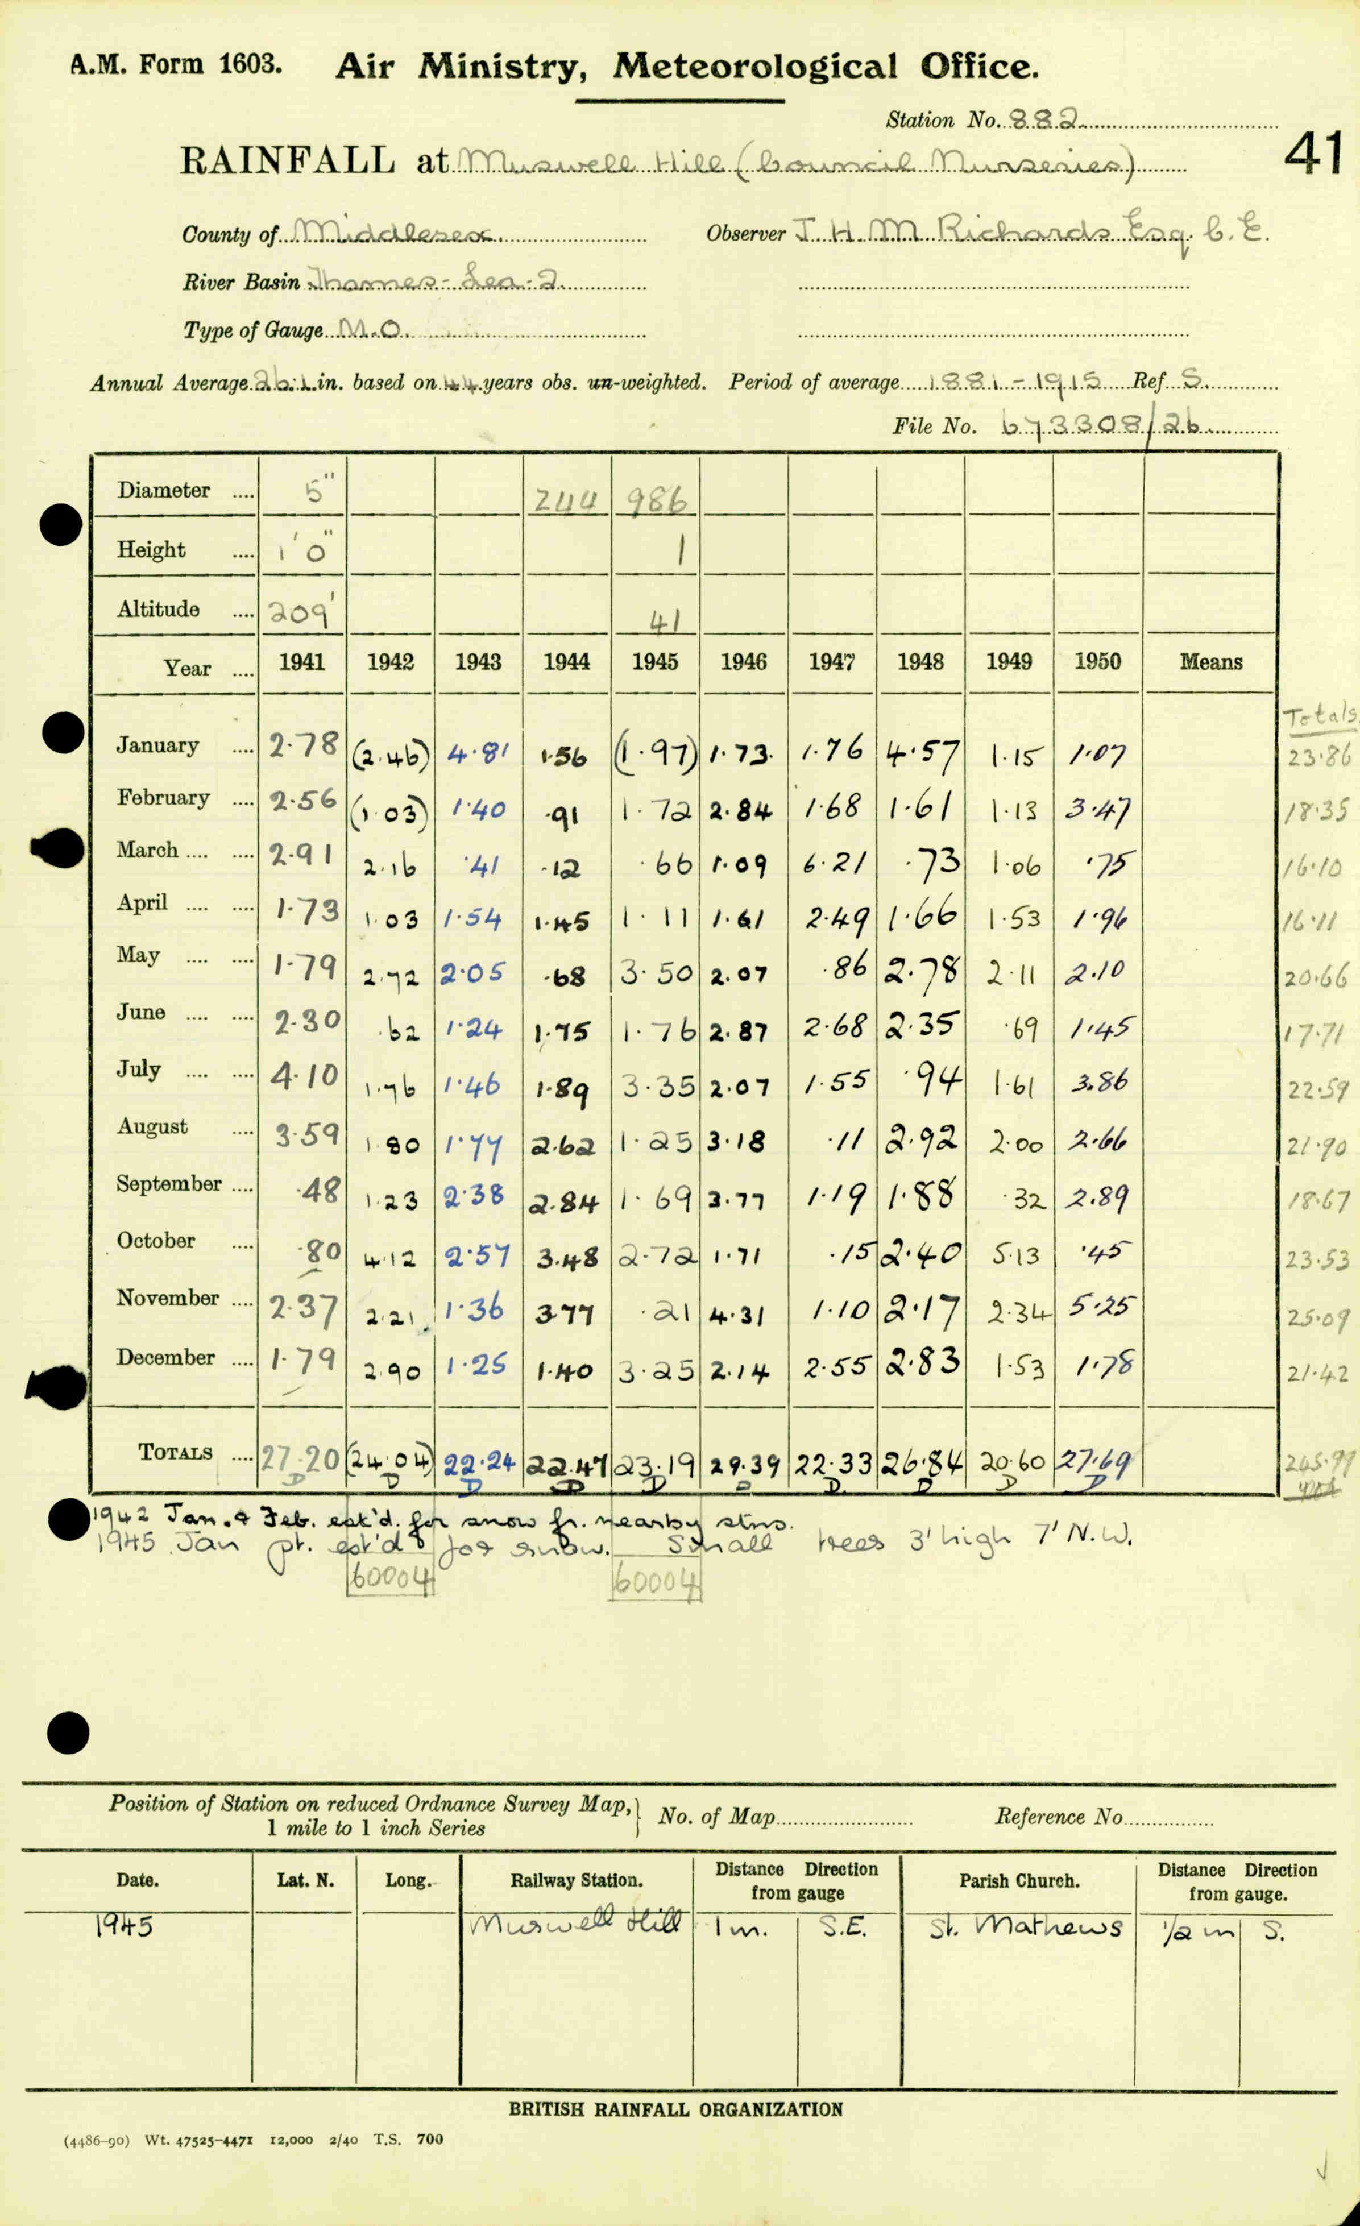 A.M. Form 1603. Air Ministry, Meteorological Office.
Station No. 882
41
RAINFALL at Muswell Hill (Council Nurseries)
County of Middlesex Observer J. H. M Richards Esq. C. E.
River Basin Thames - Lea - 2
Type of Gauge M.O.
Annual Average 26.1 in. based on 44 years obs. un-weighted. Period of average 1881 - 1915 Ref S.
File No. 673308/26
Diameter .... 5" 244 986
Height .... 1' 0" 1
Altitude .... 209' 41
Year .... 1941 1942 1943 1944 1945 1946 1947 1948 1949 1950 Means
Totals
January .... 2.78 (2.46) 4.81 1.56 (1.97) 1.73 1.76 4.57 1.15 1.07 23.86
February .... 2.56 (1.03) 1.40 .91 1.72 2.84 1.68 1.61 1.13 3.47 18.35
March .... .... 2.91 2.16 .41 .12 .66 1.09 6.21 .73 1.06 .75 16.10
April .... .... 1.73 1.03 1.54 1.45 1.11 1.61 2.49 1.66 1.53 1.96 16.11
May .... .... 1.79 2.72 2.05 .68 3.50 2.07 .86 2.78 2.11 2.10 20.66
June .... .... 2.30 .62 1.24 1.75 1.76 2.87 2.68 2.35 .69 1.45 17.71
July .... .... 4.10 1.76 1.46 1.89 3.35 2.07 1.55 .94 1.61 3.86 22.59
August .... 3.59 1.80 1.77 2.62 1.25 3.18 .11 2.92 2.00 2.66 21.90
September .... .48 1.23 2.38 2.84 1.69 3.77 1.19 1.88 .32 2.89 18.67
October .... .80 4.12 2.57 3.48 2.72 1.71 .15 2.40 5.13 .45 23.53
November .... 2.37 2.21 1.36 3.77 .21 4.31 1.10 2.17 2.34 5.25 25.09
December .... 1.79 2.90 1.25 1.40 3.25 2.14 2.55 2.83 1.53 1.78 21.42
TOTALS .... 27.20 (24.04) 22.24 22.47 23.19 29.39 22.33 26.84 20.60 27.69 265.99
D D D D D D D D D D
1942 Jan. & Feb. est'd. for snow fr. nearby stns.
1945 Jan pt. est'd for snow. Small trees 3' high 7' N.W.
60004 60004
Position of Station on reduced Ordnance Survey Map, No. of Map Reference No.
1 mile to 1 inch Series
Date. Lat. N. Long. Railway Station. Distance Direction from gauge Parish Church. Distance Direction from gauge.
1945 Muswell Hill 1 m. S.E. St. Mathews 1/2 m S.
BRITISH RAINFALL ORGANIZATION
(4486-90) Wt. 47525-4471 12,000 2/40 T.S. 700